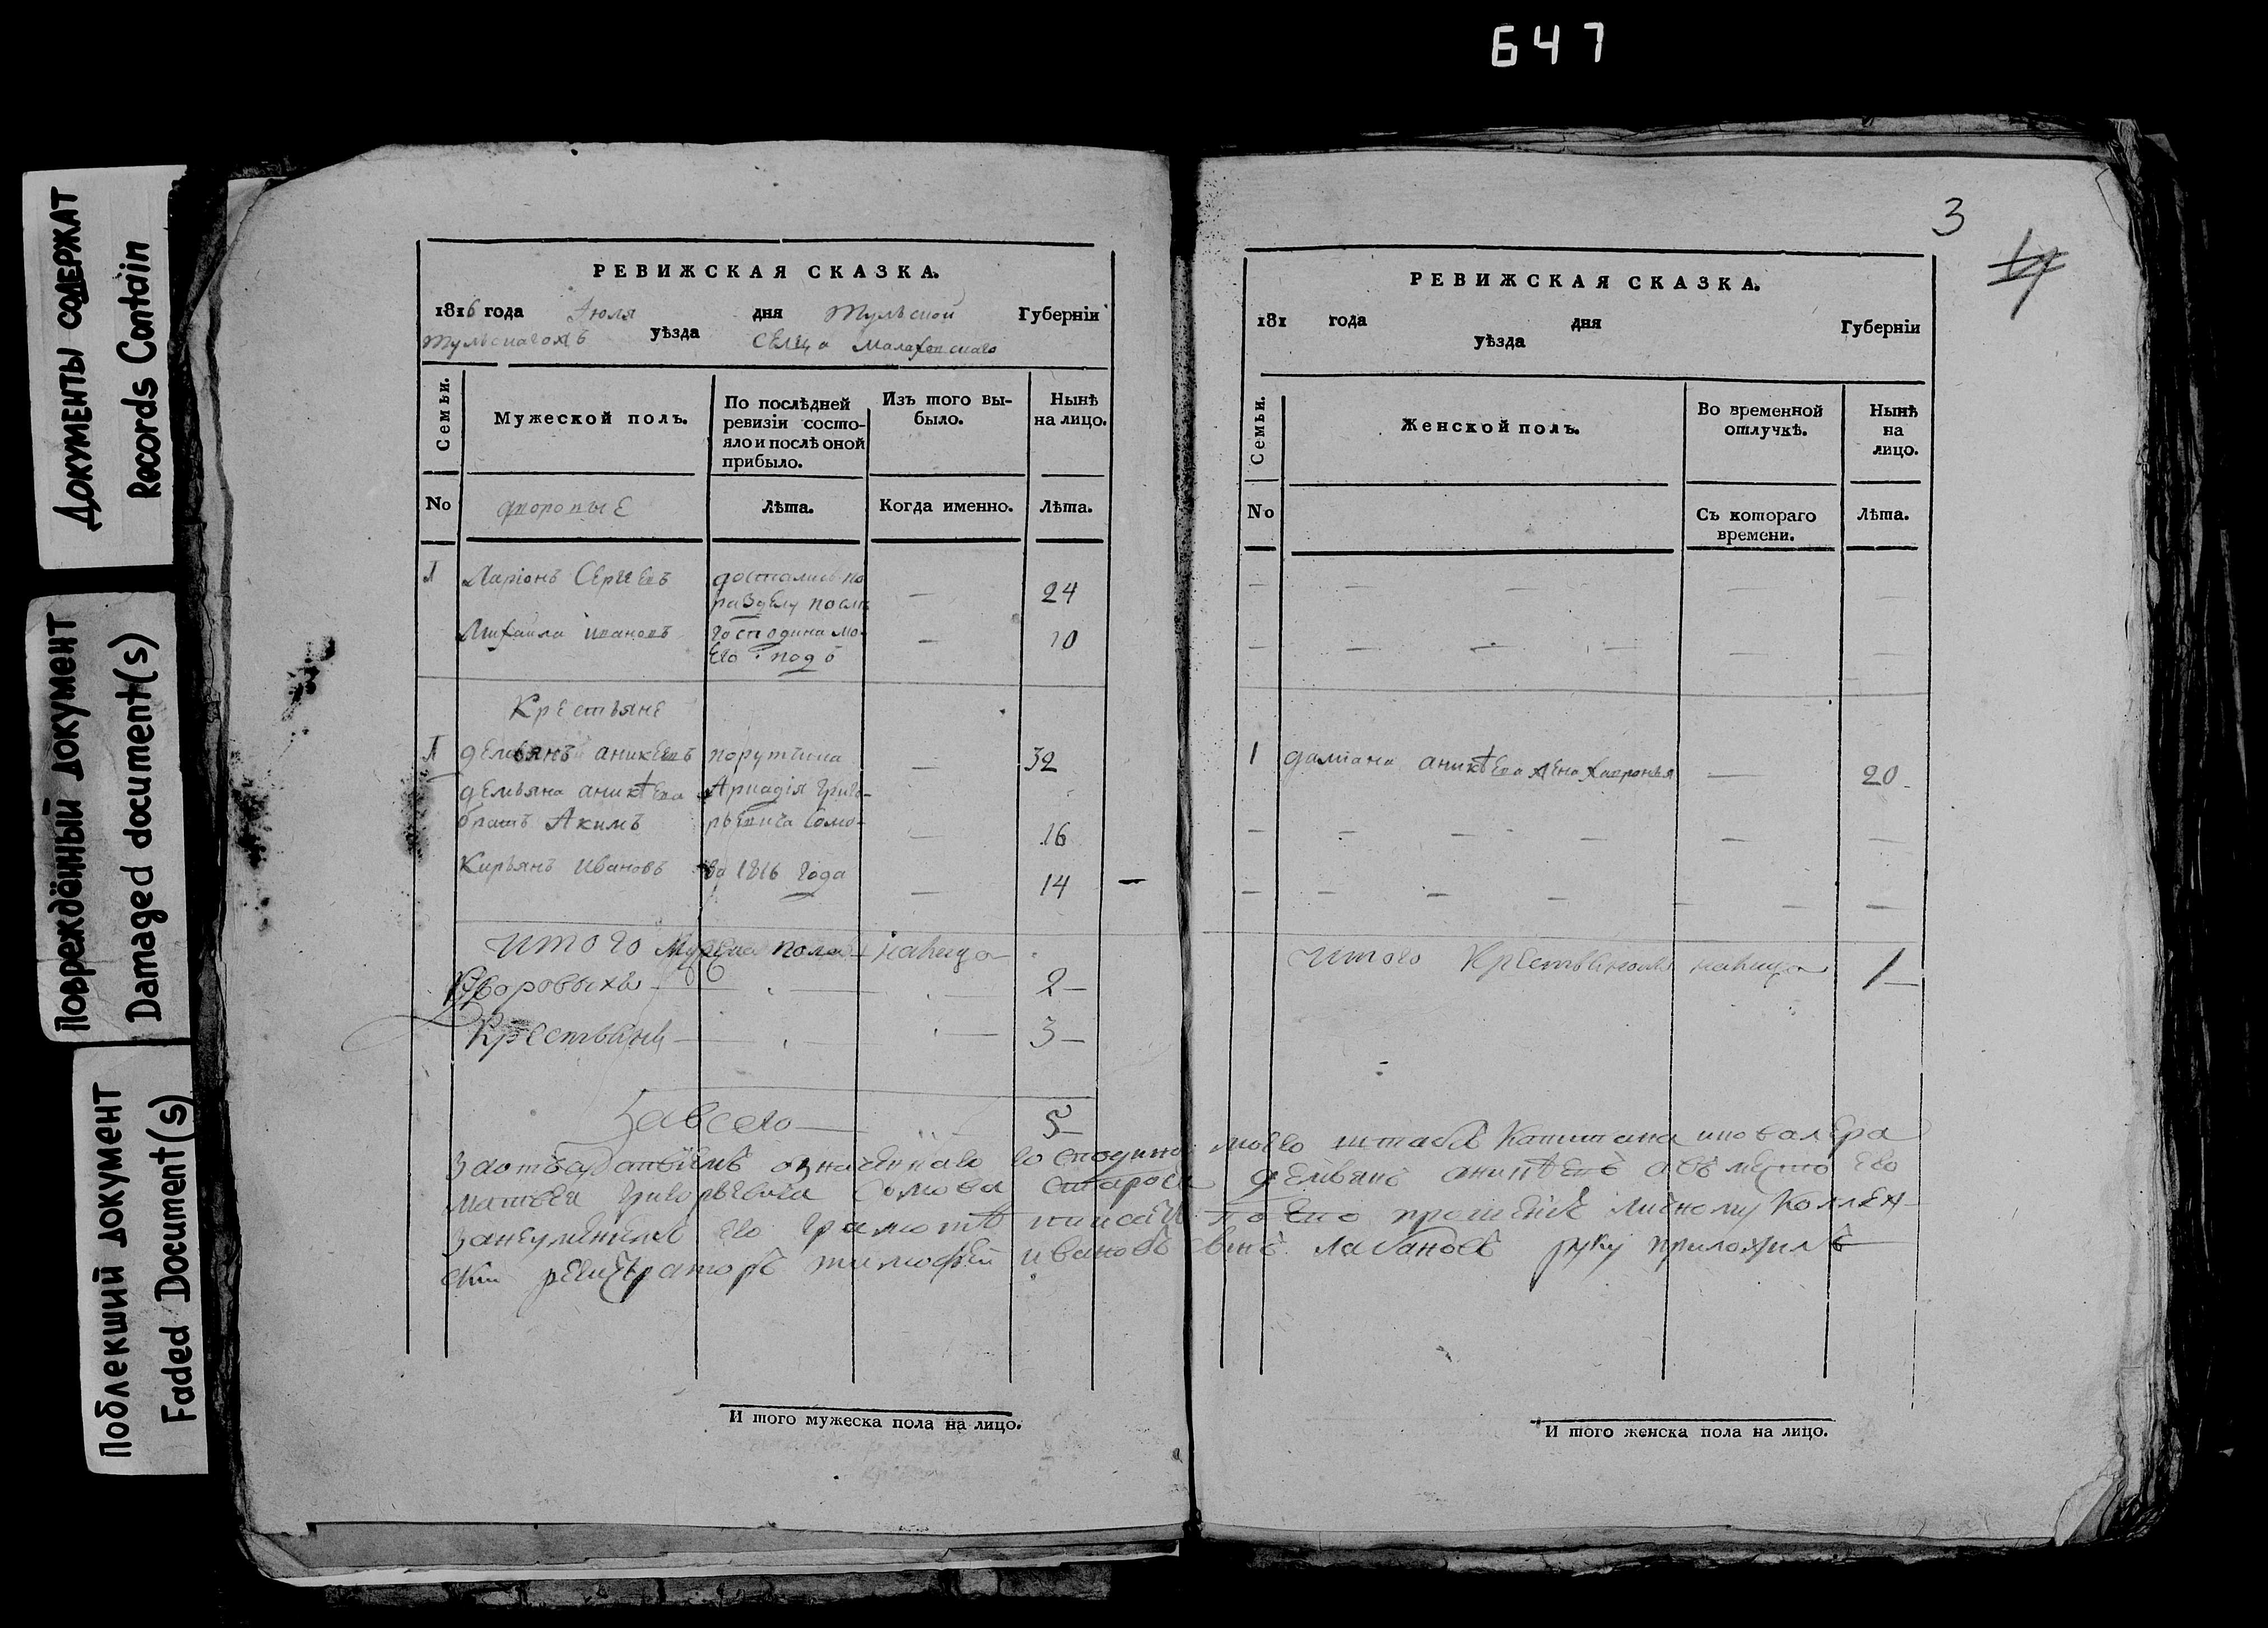 647
Документы содержат
Records Contain
Повреждённый документ
Damaged document(s)
Поблекший документ
Faded Document(s)
РЕВИЖСКАЯ СКАЗКА.
1816 года Июля дня Тульской Губерніи
уѣзда Селца
Семьи.
Мужеской полъ.
По послѣдней ревизіи состо-
яло и послѣ оной прибыло.
Изъ того вы-
было.
Нынѣ на лицо.
No
дворовые
Лѣта.
Когда именно.
Лѣта.
1 Ларіонъ Сергѣевъ достались по — 24
разделу после
Михаила ивановъ господина мо- — 10
его
Крестьяне
1 демьянъ аникеевъ порутчика — 32
демьяна аникѣева Аркадія Григо-
братъ Акимъ рьевича Сомо- — 16
Кирьянъ Ивановъ ва 1816 года — 14
итого мужеска пола налицо
дворовыхъ 2
Крестьянъ 3
За всего 5
И того мужеска пола на лицо.
3
РЕВИЖСКАЯ СКАЗКА.
181 года дня Губерніи
уѣзда
Семьи.
Женской полъ.
Во временной
отлучкѣ.
Нынѣ
на
лицо.
No
Съ котораго
времени.
Лѣта.
1 аникѣева жена хавронья — 20
итого налицо 1
господина моего штабсъ Капитана и кавалера
матвея Григорьевича Сомова староста демьянъ аникѣевъ а вместо его
за неумениемъ его грамоте по ево прошению личному Коллеж-
ски регистраторъ тимофей ивановъ сынъ лабановъ руку приложилъ
И того женска пола на лицо.